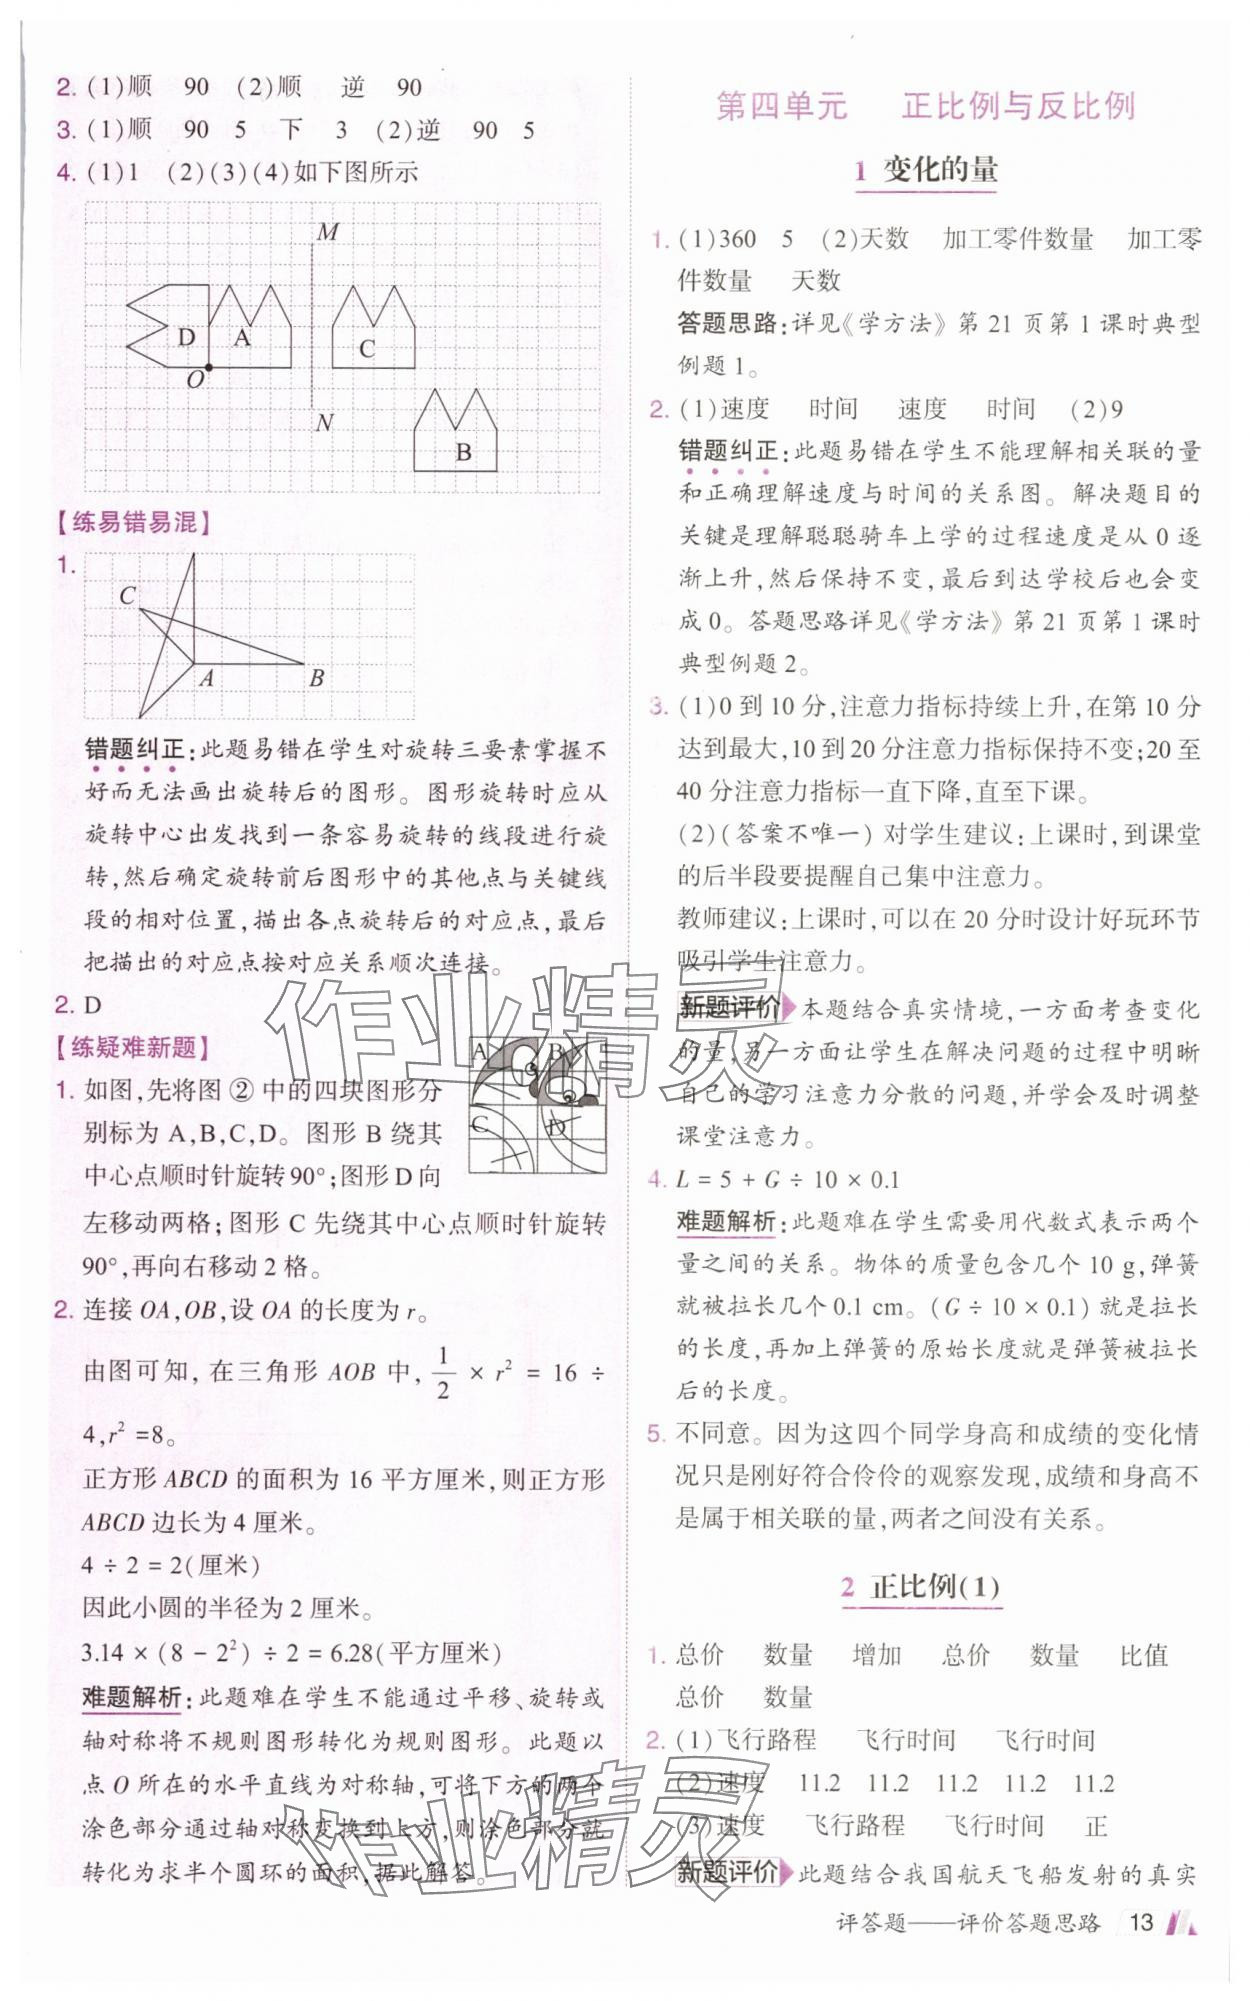 2. (1)顺 90 (2)顺 逆 90
3. (1)顺 90 5 下 3 (2)逆 90 5
4. (1)1 (2)(3)(4)如下图所示
M
D A C
O
N
B
【练易错易混】
1.
C
A B
错题纠正:此题易错在学生对旋转三要素掌握不
好而无法画出旋转后的图形。图形旋转时应从
旋转中心出发找到一条容易旋转的线段进行旋
转,然后确定旋转前后图形中的其他点与关键线
段的相对位置,描出各点旋转后的对应点,最后
把描出的对应点按对应关系顺次连接。
2. D
【练疑难新题】
1. 如图,先将图②中的四块图形分
别标为 A,B,C,D。图形 B 绕其
中心点顺时针旋转90°;图形 D 向
左移动两格;图形 C 先绕其中心点顺时针旋转
90°,再向右移动2格。
A B
C D
2. 连接 OA,OB,设 OA 的长度为 r。
由图可知,在三角形 AOB 中, 1/2 × r² = 16 ÷
4,r² =8。
正方形 ABCD 的面积为 16 平方厘米,则正方形
ABCD 边长为 4 厘米。
4 ÷ 2 = 2(厘米)
因此小圆的半径为 2 厘米。
3.14 × (8 - 2²) ÷ 2 = 6.28(平方厘米)
难题解析:此题难在学生不能通过平移、旋转或
轴对称将不规则图形转化为规则图形。此题以
点 O 所在的水平直线为对称轴,可将下方的两个
涂色部分通过轴对称变换到上方,则涂色部分就
转化为求半个圆环的面积,据此解答。
第四单元 正比例与反比例
1 变化的量
1. (1)360 5 (2)天数 加工零件数量 加工零
件数量 天数
答题思路:详见《学方法》第 21 页第 1 课时典型
例题 1。
2. (1)速度 时间 速度 时间 (2)9
错题纠正:此题易错在学生不能理解相关联的量
和正确理解速度与时间的关系图。解决题目的
关键是理解聪聪骑车上学的过程速度是从 0 逐
渐上升,然后保持不变,最后到达学校后也会变
成 0。答题思路详见《学方法》第 21 页第 1 课时
典型例题 2。
3. (1)0 到 10 分,注意力指标持续上升,在第 10 分
达到最大,10 到 20 分注意力指标保持不变;20 至
40 分注意力指标一直下降,直至下课。
(2)(答案不唯一)对学生建议:上课时,到课堂
的后半段要提醒自己集中注意力。
教师建议:上课时,可以在 20 分时设计好玩环节
吸引学生注意力。
新题评价 本题结合真实情境,一方面考查变化
的量,另一方面让学生在解决问题的过程中明晰
自己的学习注意力分散的问题,并学会及时调整
课堂注意力。
4. L = 5 + G ÷ 10 × 0.1
难题解析:此题难在学生需要用代数式表示两个
量之间的关系。物体的质量包含几个 10 g,弹簧
就被拉长几个 0.1 cm。(G ÷ 10 × 0.1)就是拉长
的长度,再加上弹簧的原始长度就是弹簧被拉长
后的长度。
5. 不同意。因为这四个同学身高和成绩的变化情
况只是刚好符合伶伶的观察发现,成绩和身高不
是属于相关联的量,两者之间没有关系。
2 正比例(1)
1. 总价 数量 增加 总价 数量 比值
总价 数量
2. (1)飞行路程 飞行时间 飞行时间
(2)速度 11.2 11.2 11.2 11.2 11.2
(3)速度 飞行路程 飞行时间 正
新题评价 此题结合我国航天飞船发射的真实
评答题——评价答题思路 13
作业精灵
作业精灵